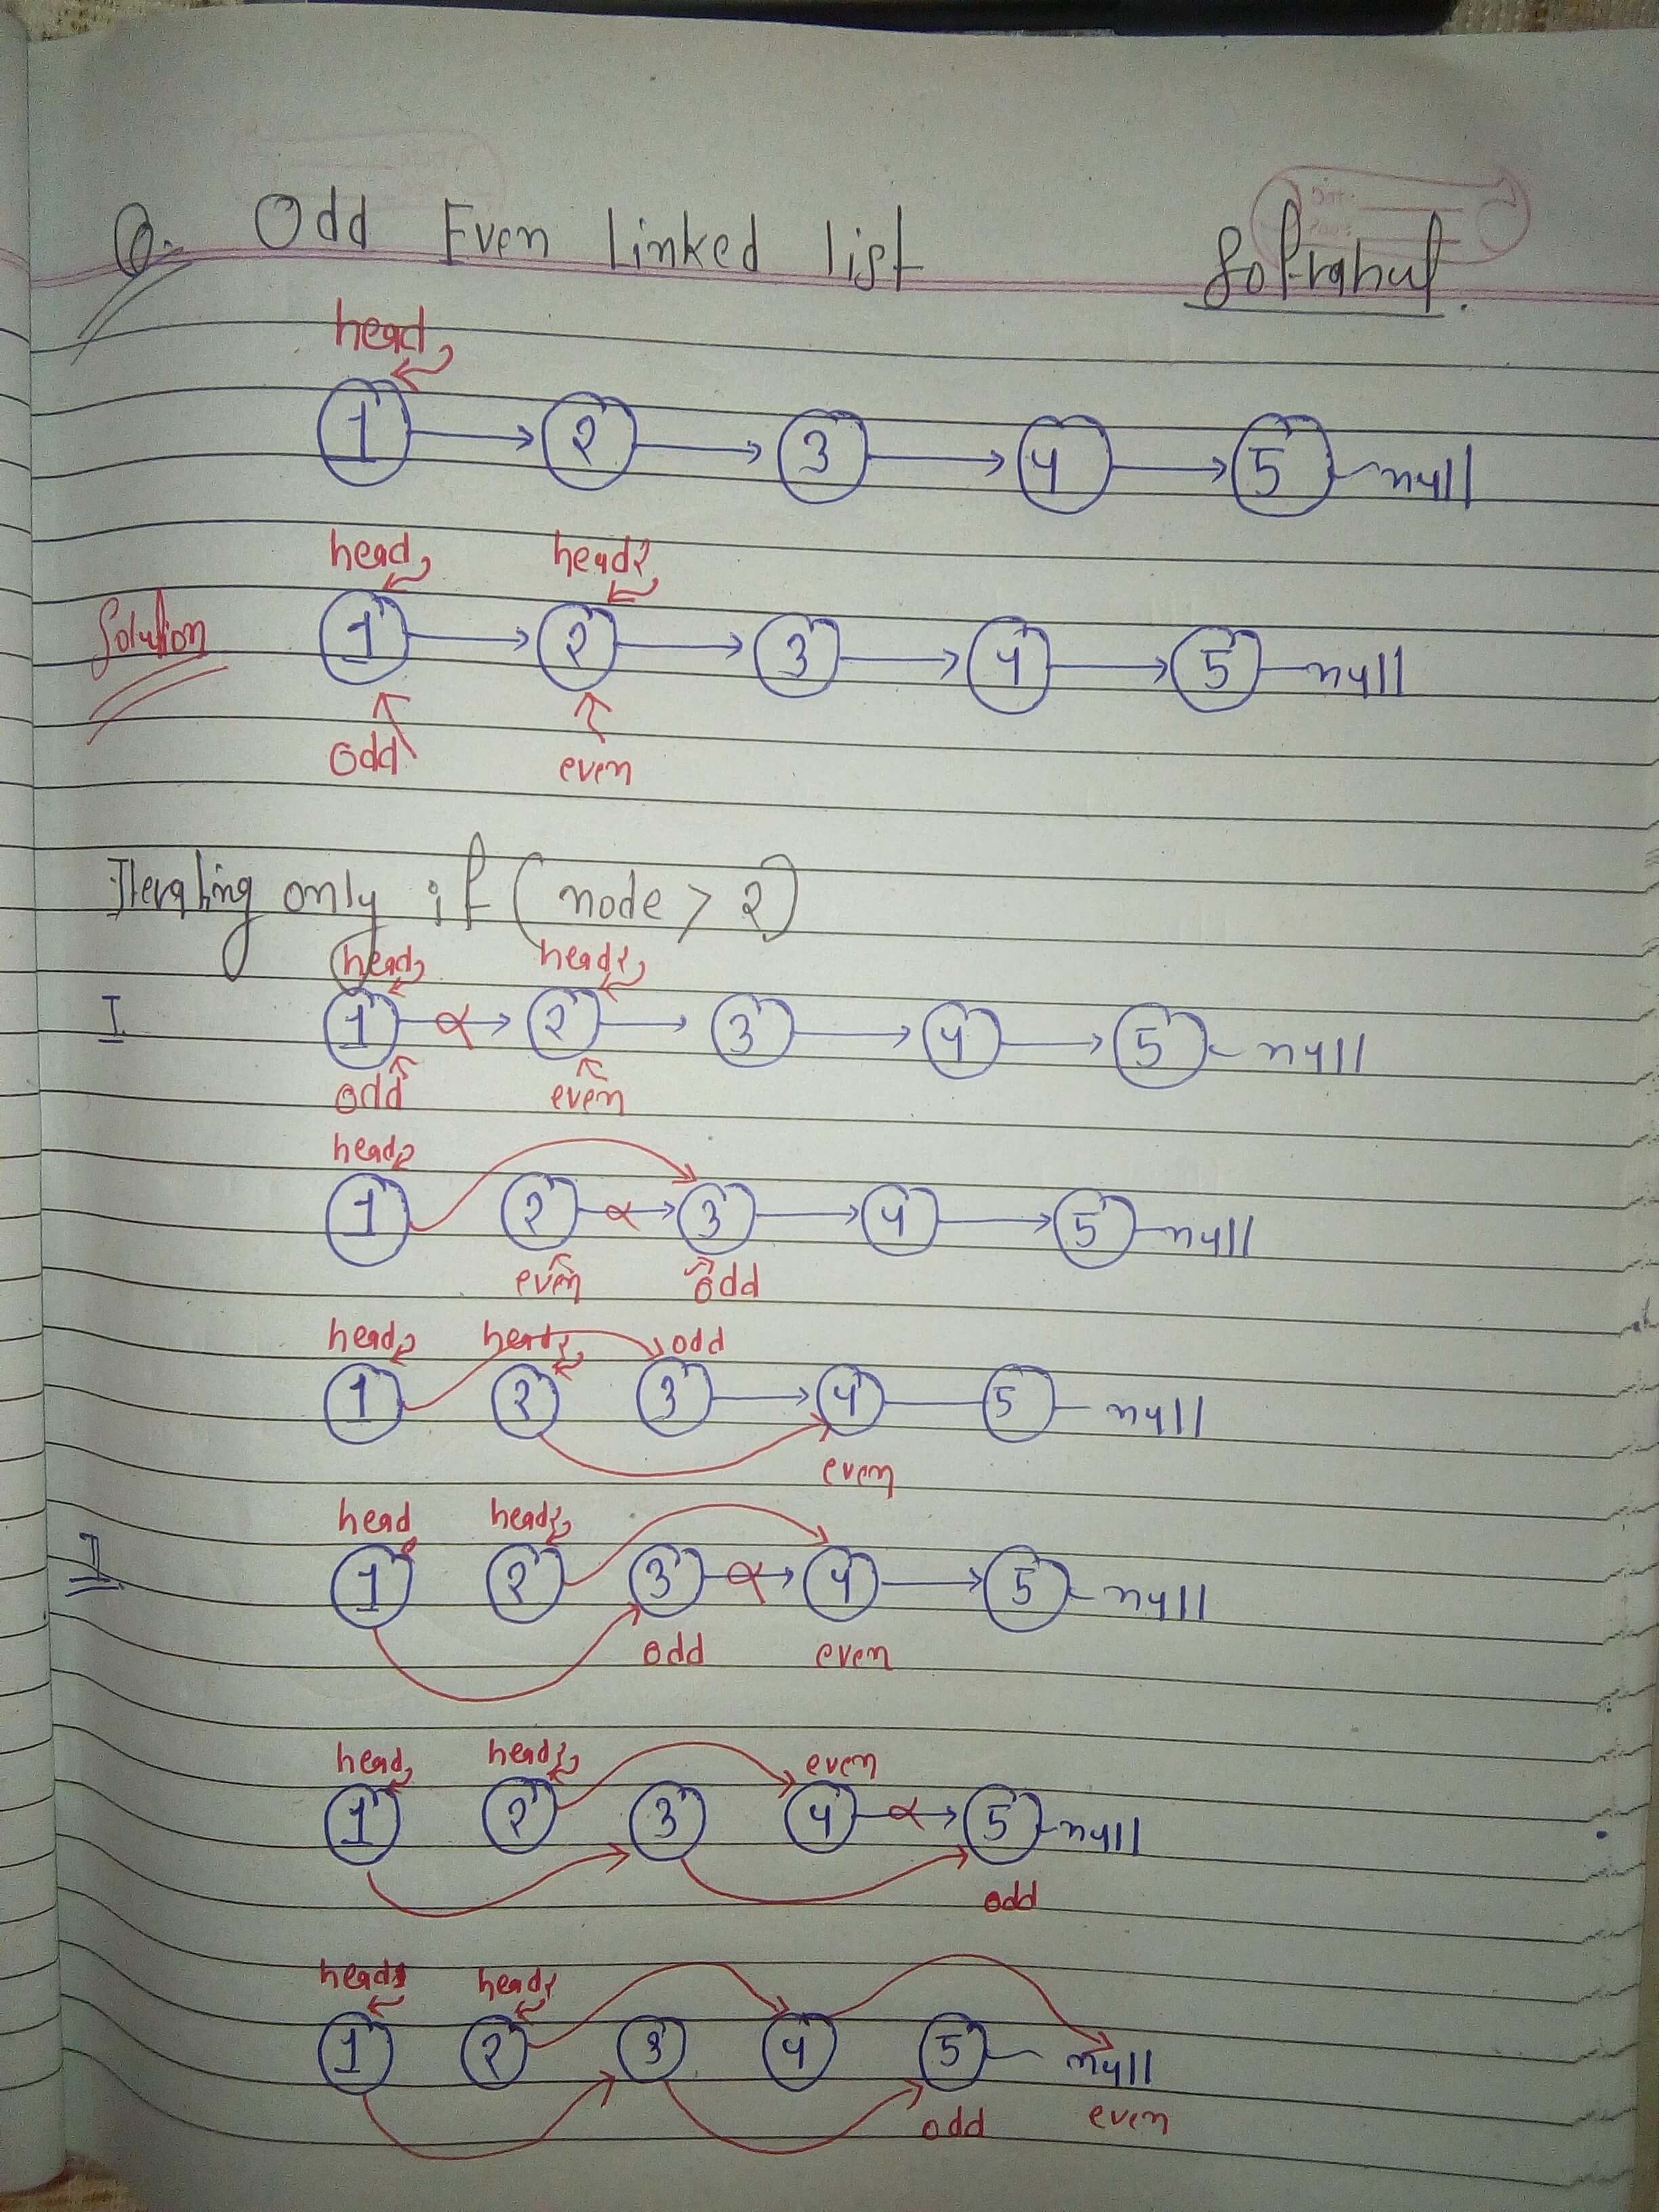 Q. Odd Even Linked list
Sofrahul.
head
1 2 3 4 5 null
head head2
Solution 1 2 3 4 5 null
odd even
Iterating only if (node > 2)
head head2
I 1 2 3 4 5 null
odd even
head
1 2 3 4 5 null
even odd
head head2 odd
1 2 3 4 5 null
even
head head2
I 1 2 3 4 5 null
odd even
head head2 even
1 2 3 4 5 null
odd
head head2
1 2 3 4 5 null
odd even